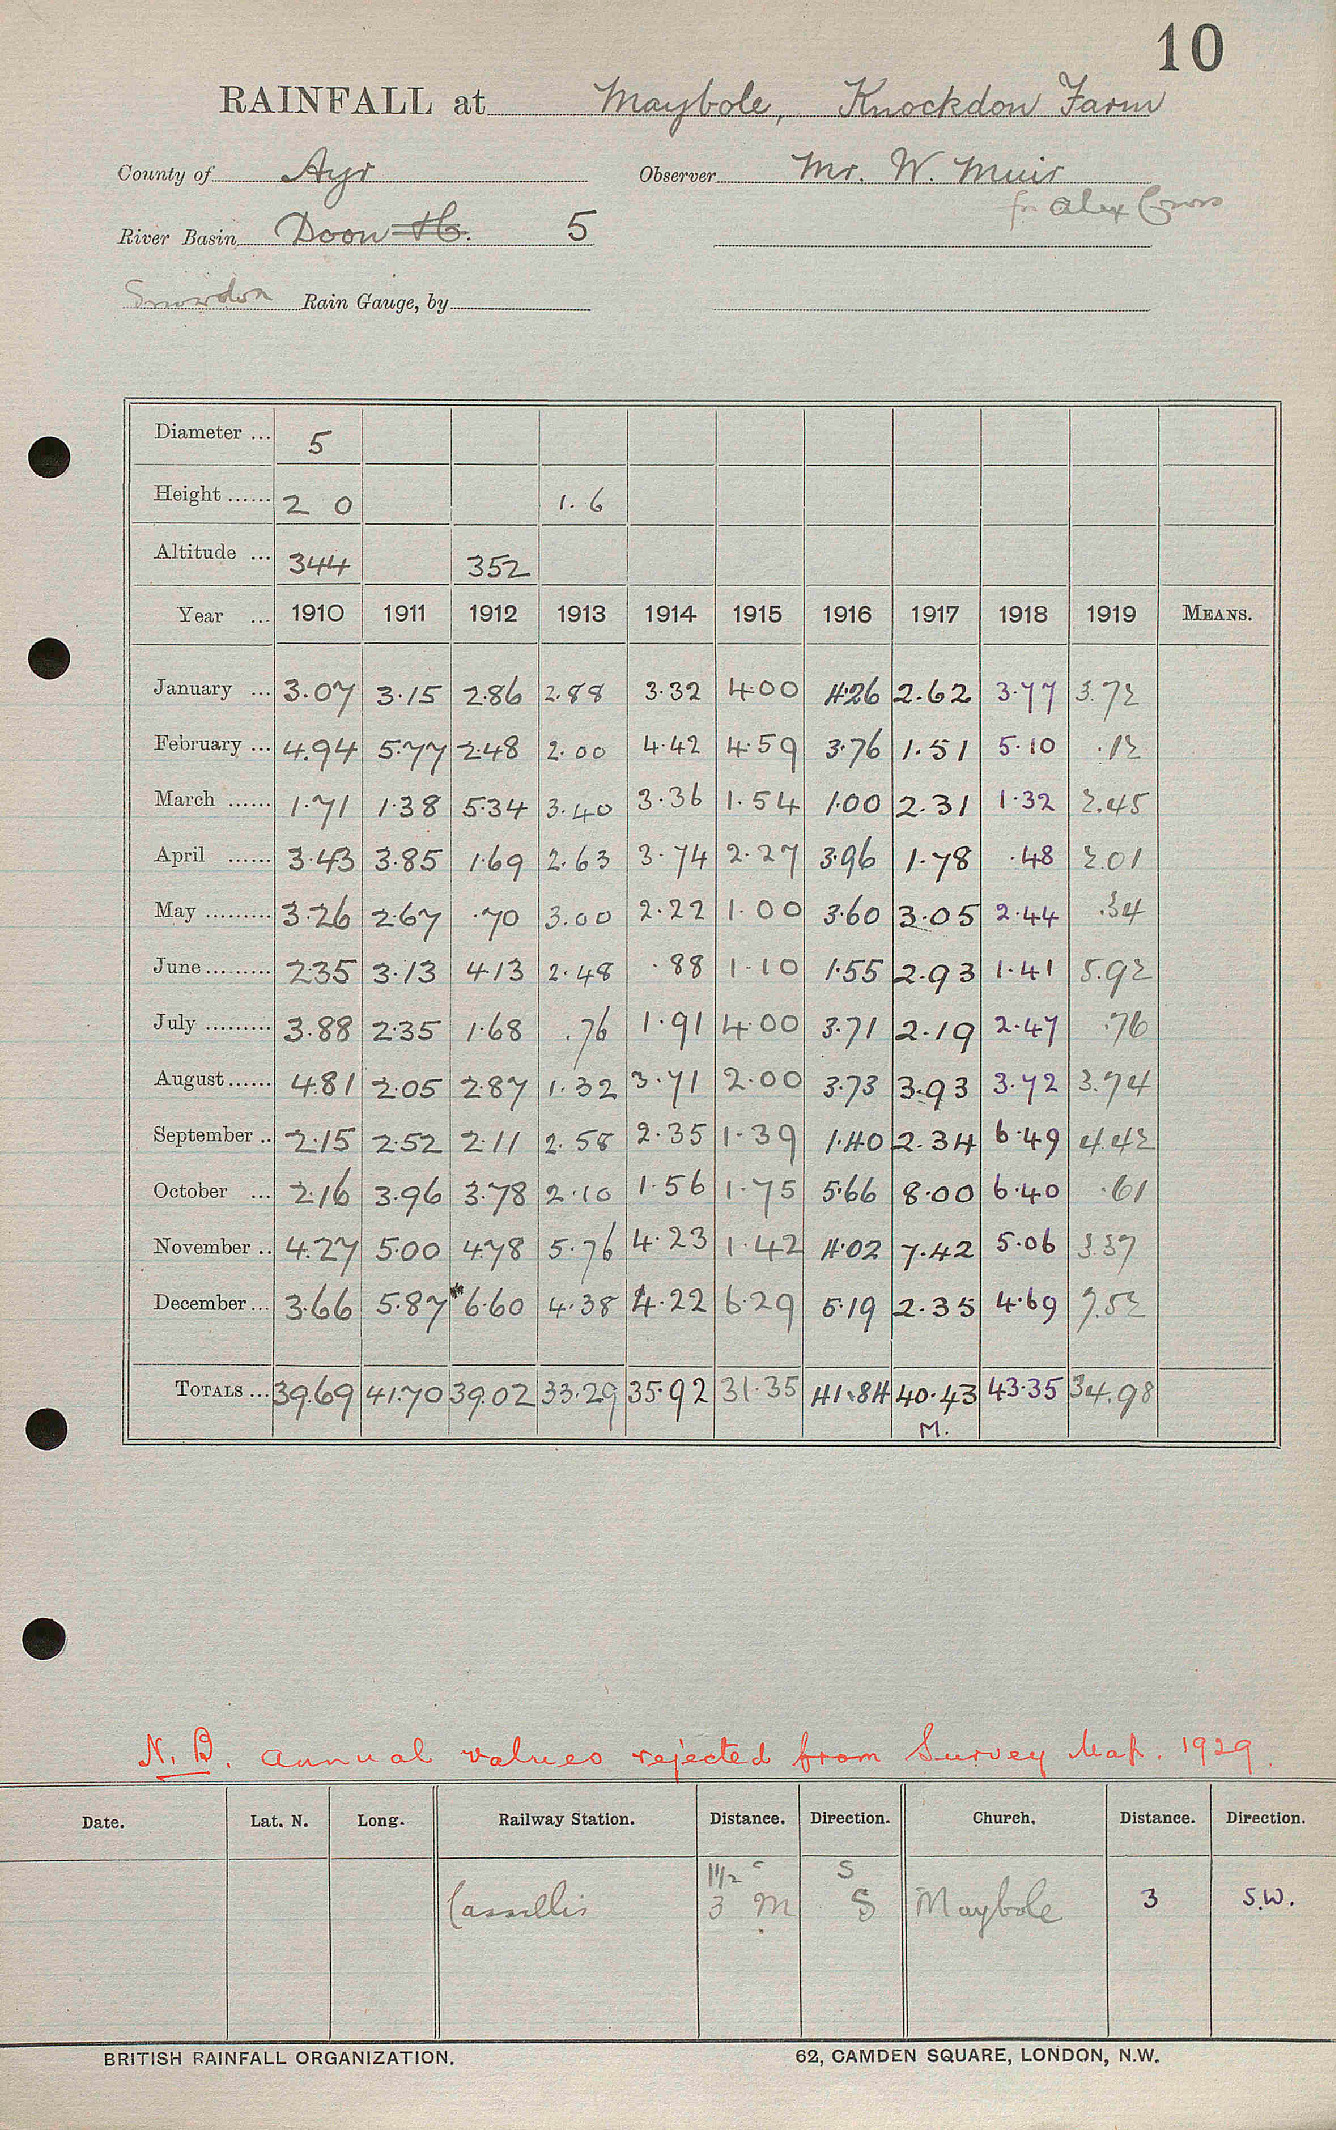 10
RAINFALL at Maybole, Knockdon Farm
County of Ayr Observer Mr. W. Muir
for Alex
River Basin Doon &c. 5
Snowdon Rain Gauge, by
Diameter ... 5
Height ...... 2 0 1. 6
Altitude ... 344 352
Year ... 1910 1911 1912 1913 1914 1915 1916 1917 1918 1919 MEANS.
January ... 3.07 3.15 2.86 2.88 3.32 4.00 4.26 2.62 3.77 3.72
February ... 4.94 5.77 2.48 2.00 4.42 4.59 3.76 1.51 5.10 .12
March ...... 1.71 1.38 5.34 3.40 3.36 1.54 1.00 2.31 1.32 2.45
April ...... 3.43 3.85 1.69 2.63 3.74 2.27 3.96 1.78 .48 2.01
May ......... 3.26 2.67 .70 3.00 2.22 1.00 3.60 3.05 2.44 .34
June ......... 2.35 3.13 4.13 2.48 .88 1.10 1.55 2.93 1.41 5.92
July ......... 3.88 2.35 1.68 .76 1.91 4.00 3.71 2.19 2.47 .76
August ...... 4.81 2.05 2.87 1.32 3.71 2.00 3.73 3.93 3.72 3.74
September .. 2.15 2.52 2.11 2.58 2.35 1.39 1.40 2.34 6.49 4.42
October ... 2.16 3.96 3.78 2.10 1.56 1.75 5.66 8.00 6.40 .61
November .. 4.27 5.00 4.78 5.76 4.23 1.42 4.02 7.42 5.06 3.37
December ... 3.66 5.87 *6.60 4.38 4.22 6.29 5.19 2.35 4.69 7.52
TOTALS ... 39.69 41.70 39.02 33.29 35.92 31.35 41.84 40.43 43.35 34.98
M.
N.B. Annual values rejected from Survey Map. 1929.
Date. Lat. N. Long. Railway Station. Distance. Direction. Church. Distance. Direction.
1 1/2 S
Cassillis 3 M S Maybole 3 S.W.
BRITISH RAINFALL ORGANIZATION. 62, CAMDEN SQUARE, LONDON, N.W.